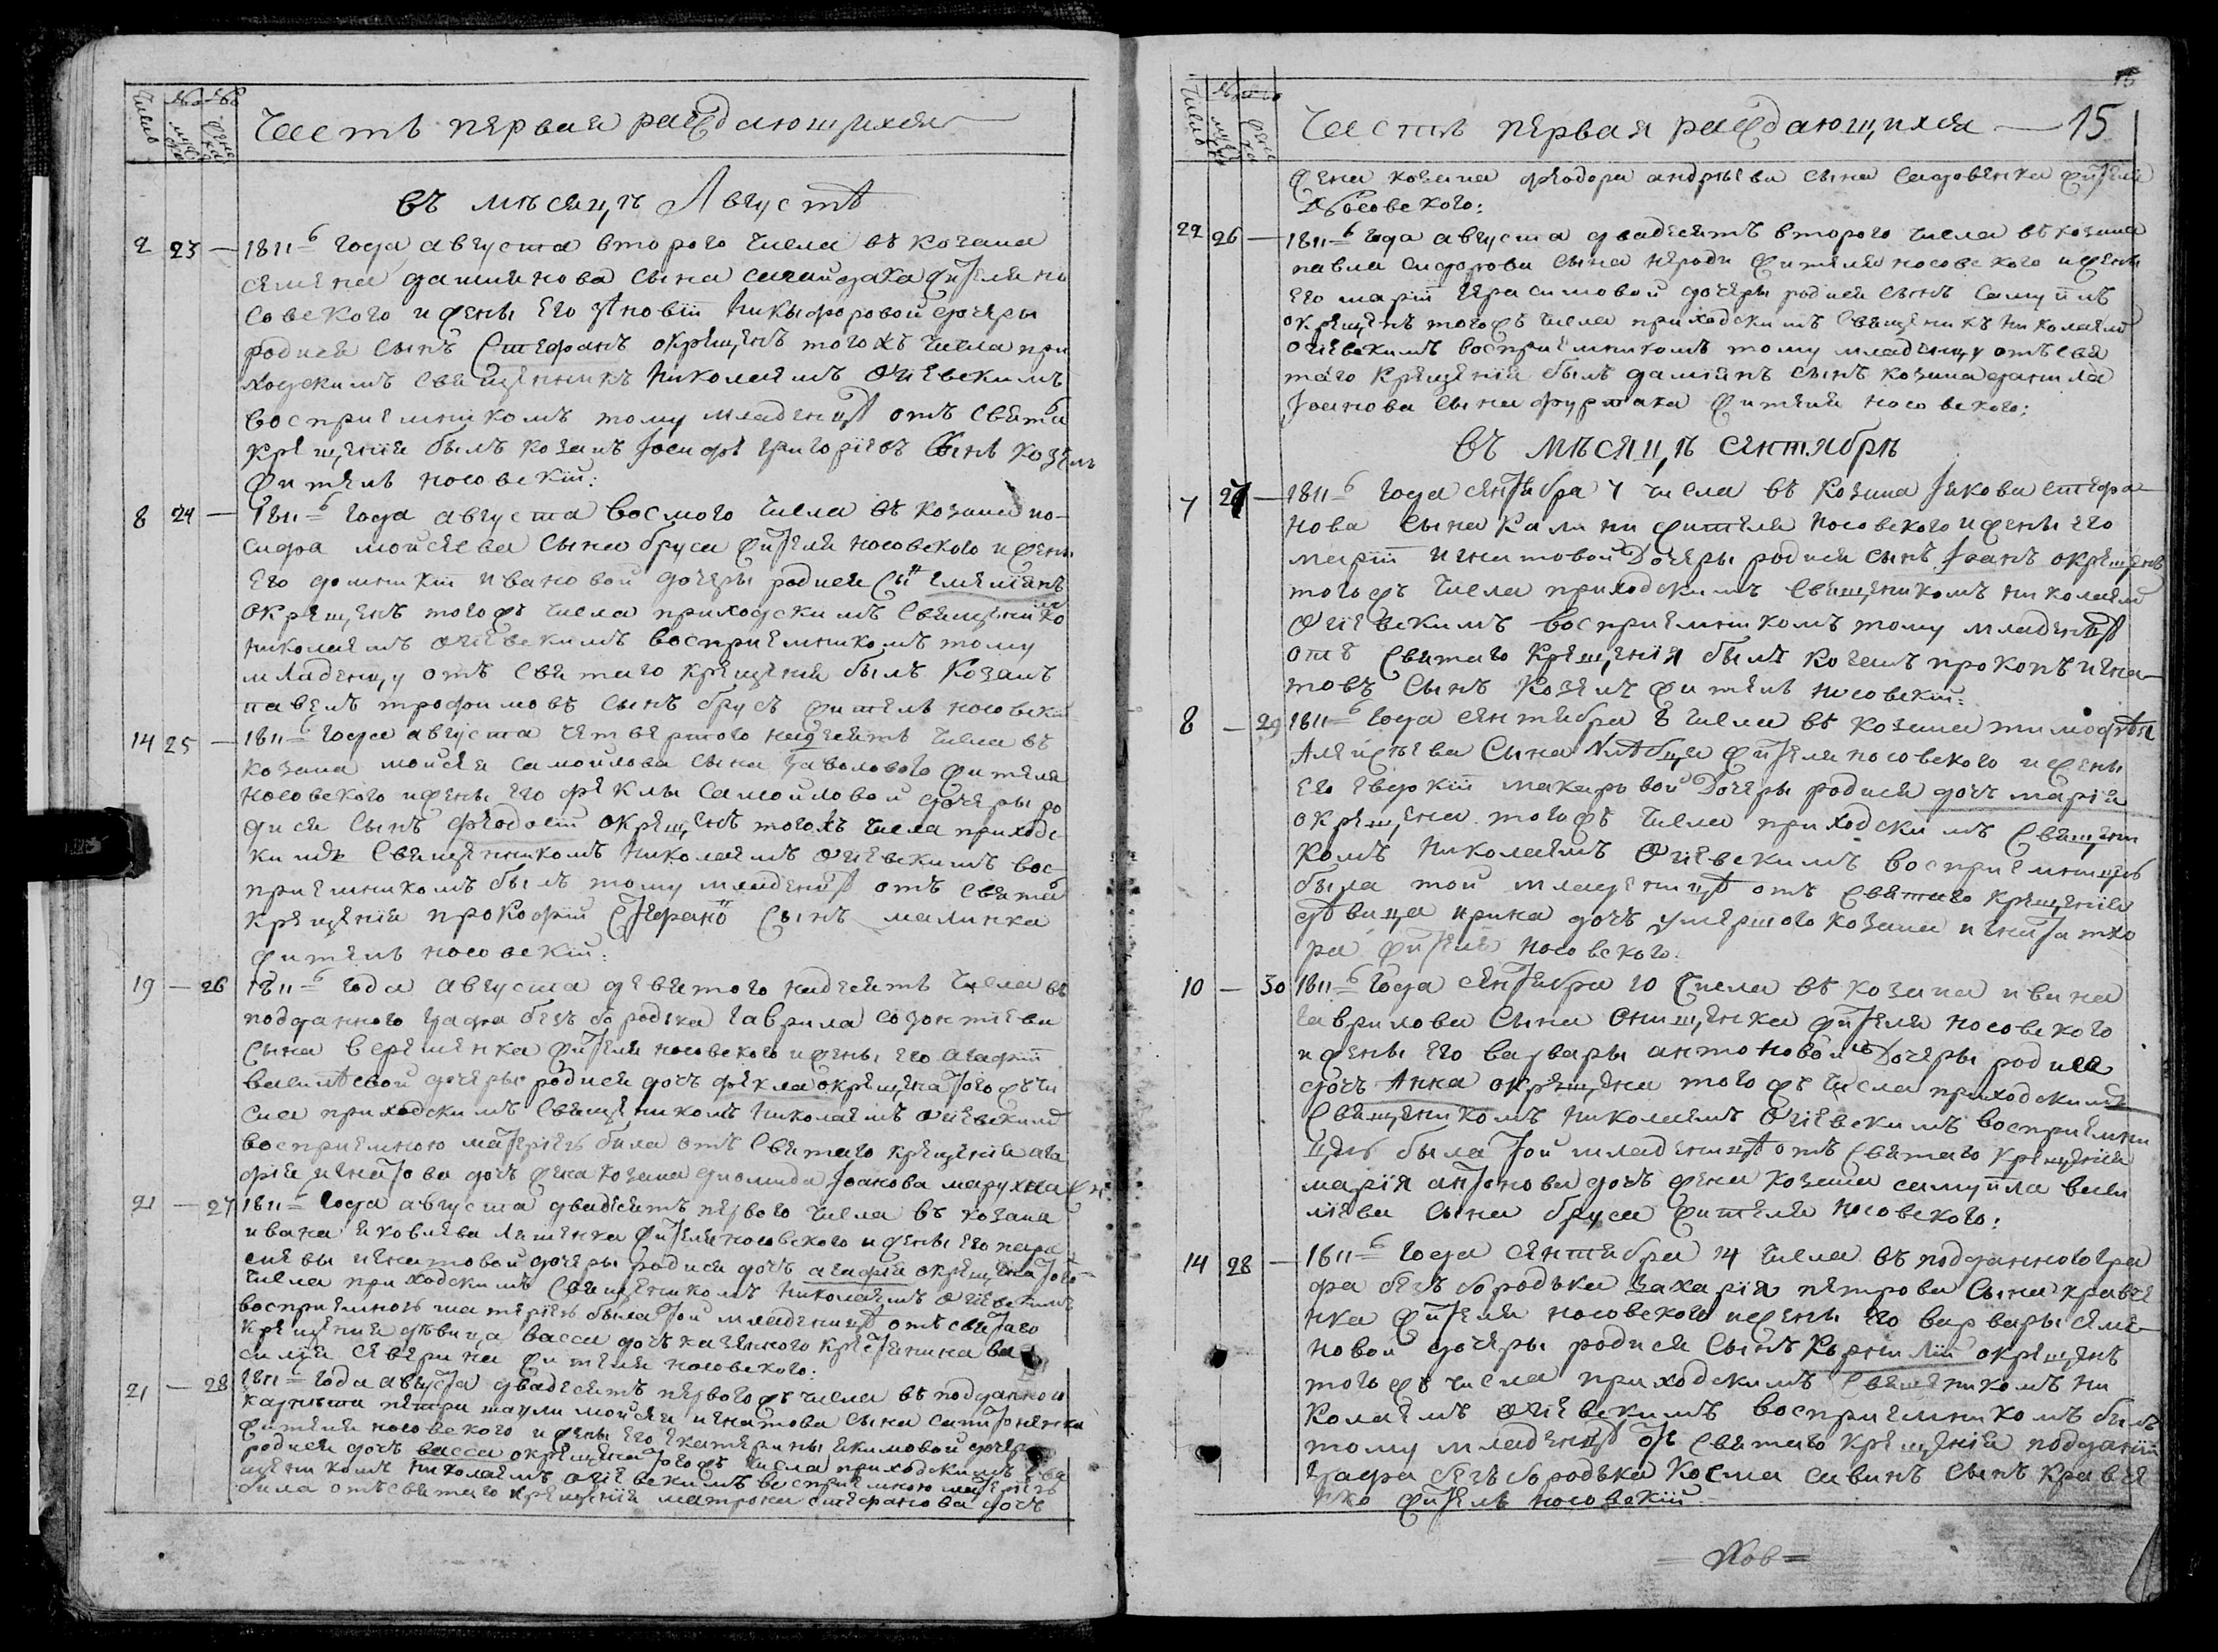 Число
№ муже
№ жене
Часть первая раждающихся
въ мѣсяцѣ Августѣ
2 23 — 1811 года августа второго числа въ козака
семена дамиянова сына сагайдака жителя но
совского и жены его зѣновіи никыфоровой дочеры
родися сынъ Стефанъ окрещенъ того жъ числа при
ходскимъ священникъ Николаемъ Огіевскимъ
восприемникомъ тому младенцѣ отъ святаго
крещенія былъ козакъ Іосифъ григоріевъ сынъ козелъ
житель носовскій:
8 24 — 1811 года августа восмого числа въ козака ио-
сифа мойсеева сына бруса жителя носовского и жены
его домникіи ивановой дочеры родися сынъ емеліянъ
окрещенъ того жъ числа приходскимъ священникомъ
николаемъ огіевскимъ восприемникомъ тому
младенцу отъ святаго крещенія былъ козакъ
павелъ трофимовъ сынъ брусъ житель носовскій
14 25 — 1811 года августа четвертого надесять числа въ
козака мойсея самойлова сына заволового жителя
носовского и жены его феклы самойловой дочеры ро
дися сынъ феодосій окрещенъ того жъ числа приходс-
кимъ священникомъ николаемъ огіевскимъ вос-
приемникомъ былъ тому младенцѣ отъ святаго
крещенія прокофій стефановъ сынъ малинка
житель носовскій:
19 — 26 1811 года августа девятого надесять числа въ
подданного графа безбородька гаврила созонтіева
сына веременка жителя носовского и жены его агафіи
василѣевой дочеры родися дочъ фекла окрещена того жъ чи
сла приходскимъ священикомъ николаемъ огіевскимъ
восприемною матеріею била отъ святаго крещенія ага
фія игнатова дочъ жена козака диомида Іоанова марухна жи
21 — 27 1811 года августа двадесять первого числа въ козака
ивана яковлева ляшенка жителя носовского и жены его пара
скевы игнатовой дочеры родися дочъ агафія окрещена того
числа приходскимъ священикомъ николаемъ огіевскимъ
восприемною матеріею была той младеницѣ отъ святаго
крещения дѣвица васса дочъ казенного крестянина ва
силія северина жителя носовского:
21 — 28 1811 года августа двадесять первого жъ числа въ подданного
петра мойсея игнатова сына
жителя носовского и жены его екатерины якимовой дочеры
родися дочъ васса окрещена того жъ числа приходскимъ свя
щеникомъ николаемъ огіевскимъ восприемною матеріею
била отъ святаго крещенія матрона стефанова дочъ
15
Число
№ муже
№ жене
Часть первая раждающихся — 15
жена козака феодора андрѣева сына садовенка жителя
носовского:
22 26 — 1811 года августа двадесять второго числа въ козака
павла сидорова сына нероди жителя носовского и жены
его маріи герасимовой дочеры родися сынъ самуилъ
окрещенъ того жъ числа приходскимъ священикъ николаемъ
огіевскимъ восприемникомъ тому младенцу отъ свя
таго крещенія былъ даміянъ сынъ козака данила
Іоанова сына фуртака жителя носовского:
въ мѣсяцѣ сентябрѣ
7 27 — 1811 года сентября 7 числа въ козака Іякова стефа-
нова сына калини жителя носовского и жены его
маріи игнатовой дочеры родися сынъ Іоанъ окрещенъ
того жъ числа приходскимъ священикомъ николаемъ
огіевскимъ восприемникомъ тому младенцѣ
отъ святаго крещенія былъ козакъ прокопъ игна-
товъ сынъ козелъ житель носовскій:
8 — 29 1811 года сентября 8 числа въ козака тимофѣя
Алексѣева сына жителя носовского и жены
его евдокіи макаровой дочеры родися дочъ марія
окрещена того жъ числа приходскимъ священи
комъ николаемъ огіевскимъ восприемницею
была той младеницѣ отъ святаго крещенія
дѣвица ирина дочъ умершого козака игната тхо
ра жителя носовского.
10 — 30 1811 года сентября 10 числа въ козака ивана
гаврилова сына онищенка жителя носовского
и жены его варвары антоновой дочеры родися
дочъ Анна окрещена того жъ числа приходскимъ
священикомъ николаемъ огіевскимъ восприемни
цею была той младеницѣ отъ святаго крещенія
марія антонова дочъ жена козака самуила васи
ліева сына бруса жителя носовского:
14 28 — 1811 года сентября 14 числа въ подданного гра
фа безбородька захарія петрова сына кравче
нка жителя носовского и жены его варвары семе-
новой дочеры родися сынъ Корнилій окрещенъ
того жъ числа приходскимъ священикомъ ни
колаемъ огіевскимъ восприемникомъ билъ
тому младенцѣ отъ святаго крещенія подданій
графа безбородька косма савинъ сынъ кравче
нко житель носовскій.